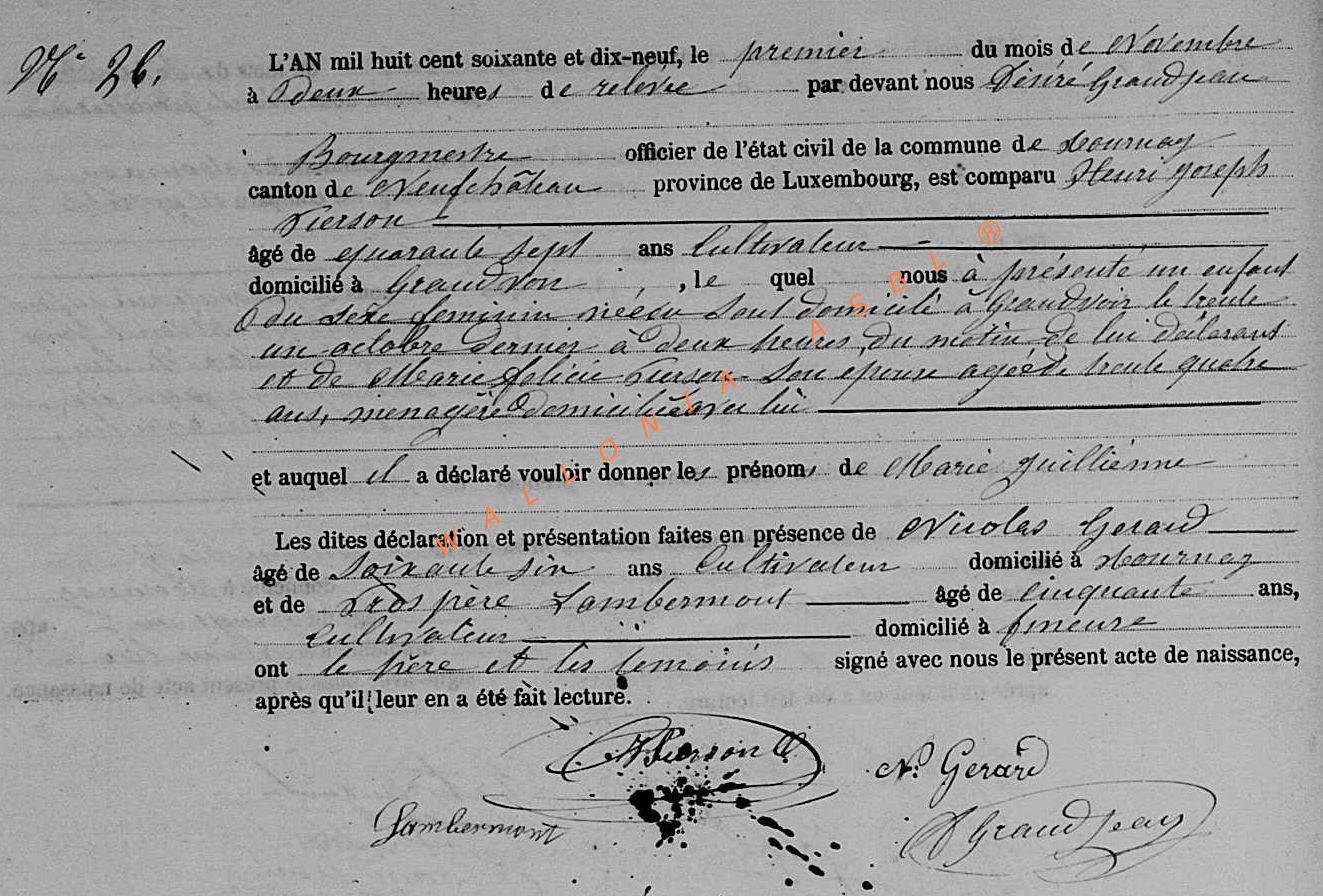 N° 26.
L'AN mil huit cent soixante et dix-neuf, le premier du mois de Novembre
à Deux heures de relevée par devant nous Désiré Grandjean
Bourgmestre officier de l'état civil de la commune de Tournay
canton de Neufchâteau province de Luxembourg, est comparu Henri Joseph
Pierson
âgé de quarante sept ans Cultivateur
domicilié à Grandvoir, le quel nous à présenté un enfant
du séxe feminin domicilié à Grandvoir le trente
un octobre dernier à deux heures du matin de lui déclarant
et de Marie felicie Pierson son épouse agée de trente quatre
ans, menagère domiciliée avec lui
et auquel il a déclaré vouloir donner les prénoms de Marie Juillienne
Les dites déclaration et présentation faites en présence de Nicolas Gerard
âgé de Soixante six ans Cultivateur domicilié à Tournay
et de Prospère Lambermont âgé de cinquante ans,
Cultivateur domicilié à fineuse
ont le père et les temoins signé avec nous le présent acte de naissance,
après qu'il leur en a été fait lecture.
HPierson
N. Gerard
Lambermont
D Grandjean
WALLONIA ASBL ®